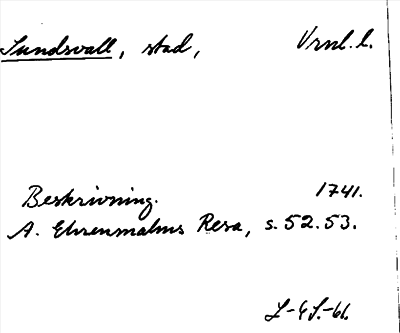 Sundsvall, stad, Vrml. l.
Beskrivning. 1741.
A. Ehrenmalms Resa, s. 52.53.